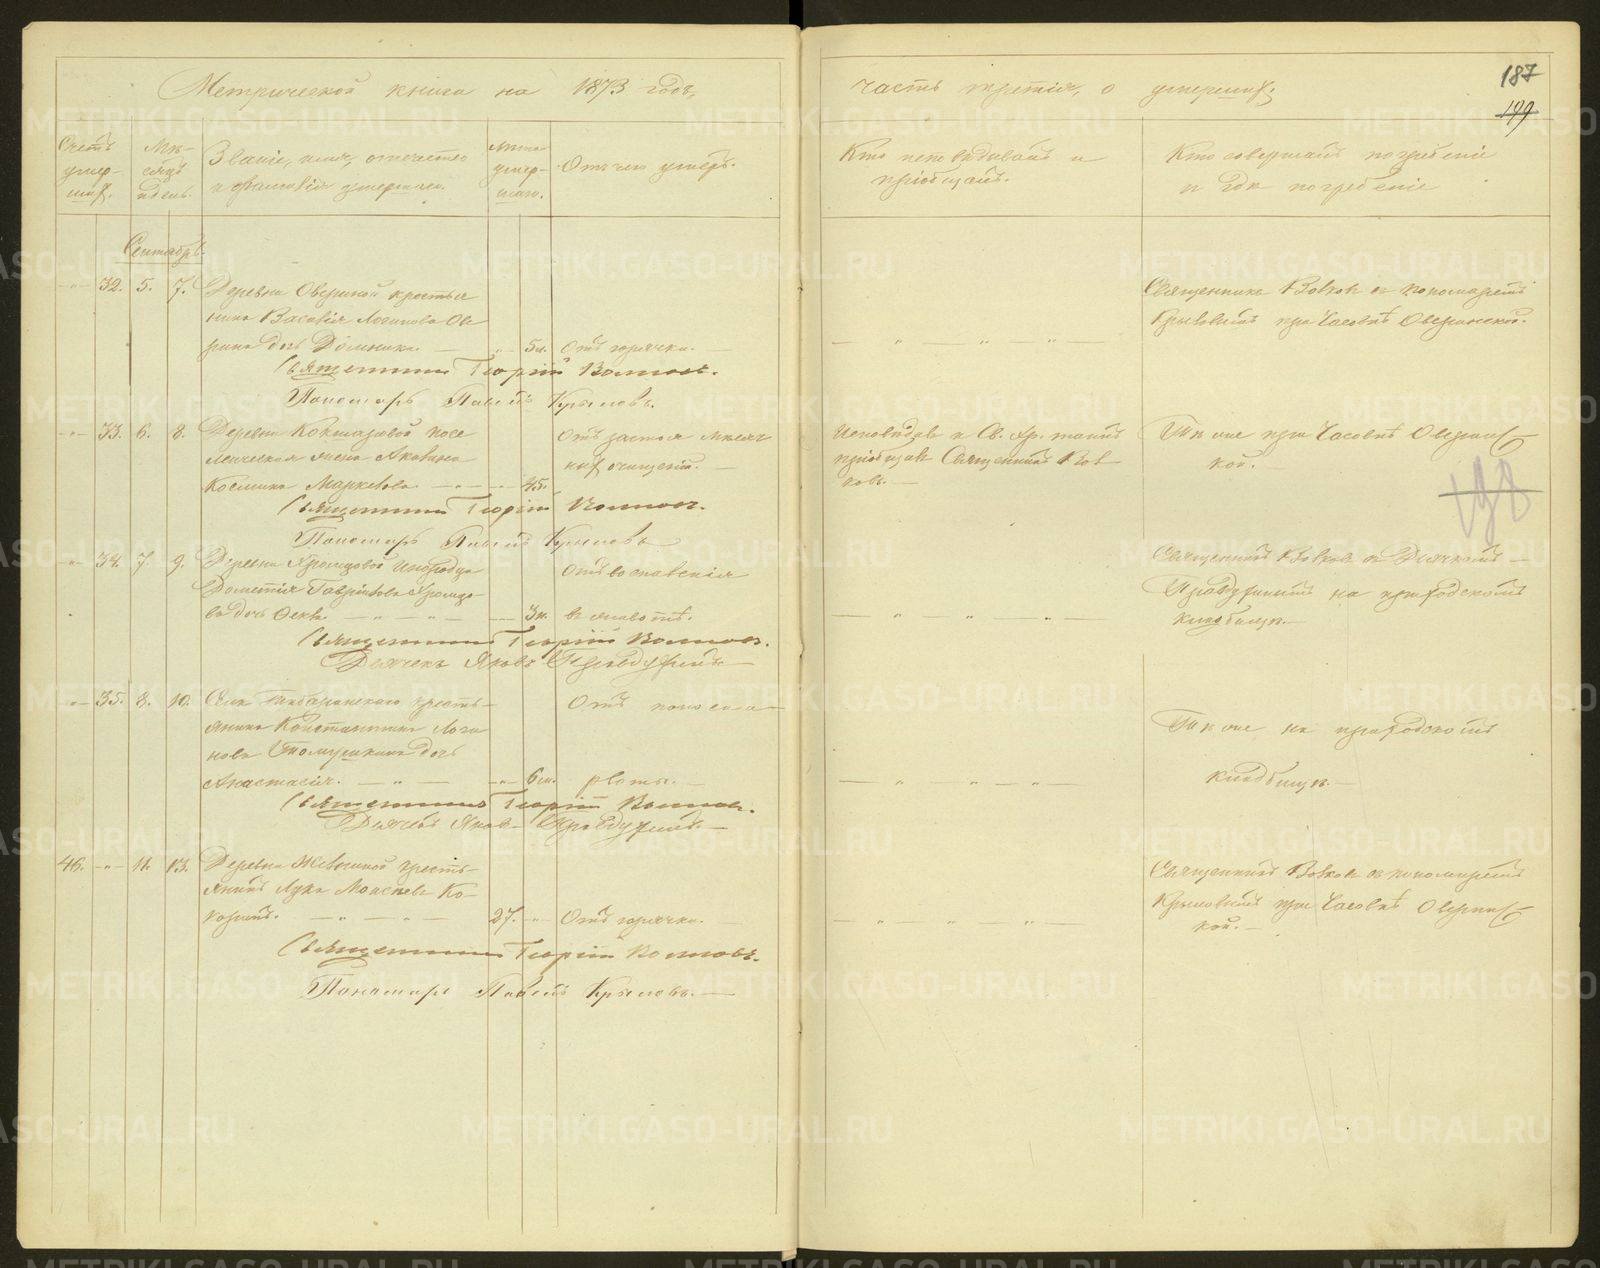 Метрической книги на 1873 годъ,
часть третія, о умершихъ.
187
199
Счетъ умер-шихъ.
Мѣ-сяцъ и день.
Званіе, имя, отчество и фамилія умершаго.
Лѣта умер-шаго.
Отъ чего умеръ.
Кто исповѣдывалъ и пріобщалъ.
Кто совершалъ погребеніе и гдѣ погребены
Сентябрь.
32. 5. 7. Деревни Овериной крестья
нина Василія Логинова Ове
рина дочь Домника. 5м. Отъ горячки.
Священника Волкова съ пономаремъ
Крыловымъ при Часовнѣ Оверинской.
Священникъ Георгій Волковъ.
Пономарь Павелъ Крыловъ.
33. 6. 8. Деревни
жена
45.
Отъ застоя мѣсяч
ныхъ очищеній.
Исповѣдав и Св. Хр. таинъ
пріобщав Священникъ Вол
ковъ.
Тѣ же при Часовнѣ Оверинс
кой.
198
Священникъ Георгій Волковъ.
Пономарь Павелъ Крыловъ
34. 7. 9. Деревни
Гаврилова
ва дочь 3н.
Отъ воспаленія
въ животѣ.
Священникъ Волковъ съ Дьячкомъ
на приходскомъ
кладбищѣ.
Священникъ Георгій Волковъ.
Дьячекъ Яковъ
35. 8. 10. Села крестья-
нина Константина Логи
нова дочь
Анастасія. 6м.
Отъ поноса
рвоты.
Тѣ же на приходскомъ
кладбищѣ.
Священникъ Георгій Волковъ.
Дьячекъ Яковъ
46. 11. 13. Деревни кресть-
янинъ Лука Моисѣевъ Ко-
27. Отъ горячки.
Священникъ Волковъ съ пономаремъ
Крыловымъ при Часовнѣ Оверинс
кой.
Священникъ Георгій Волковъ.
Пономарь Павелъ Крыловъ.
METRIKI.GASO-URAL.RU